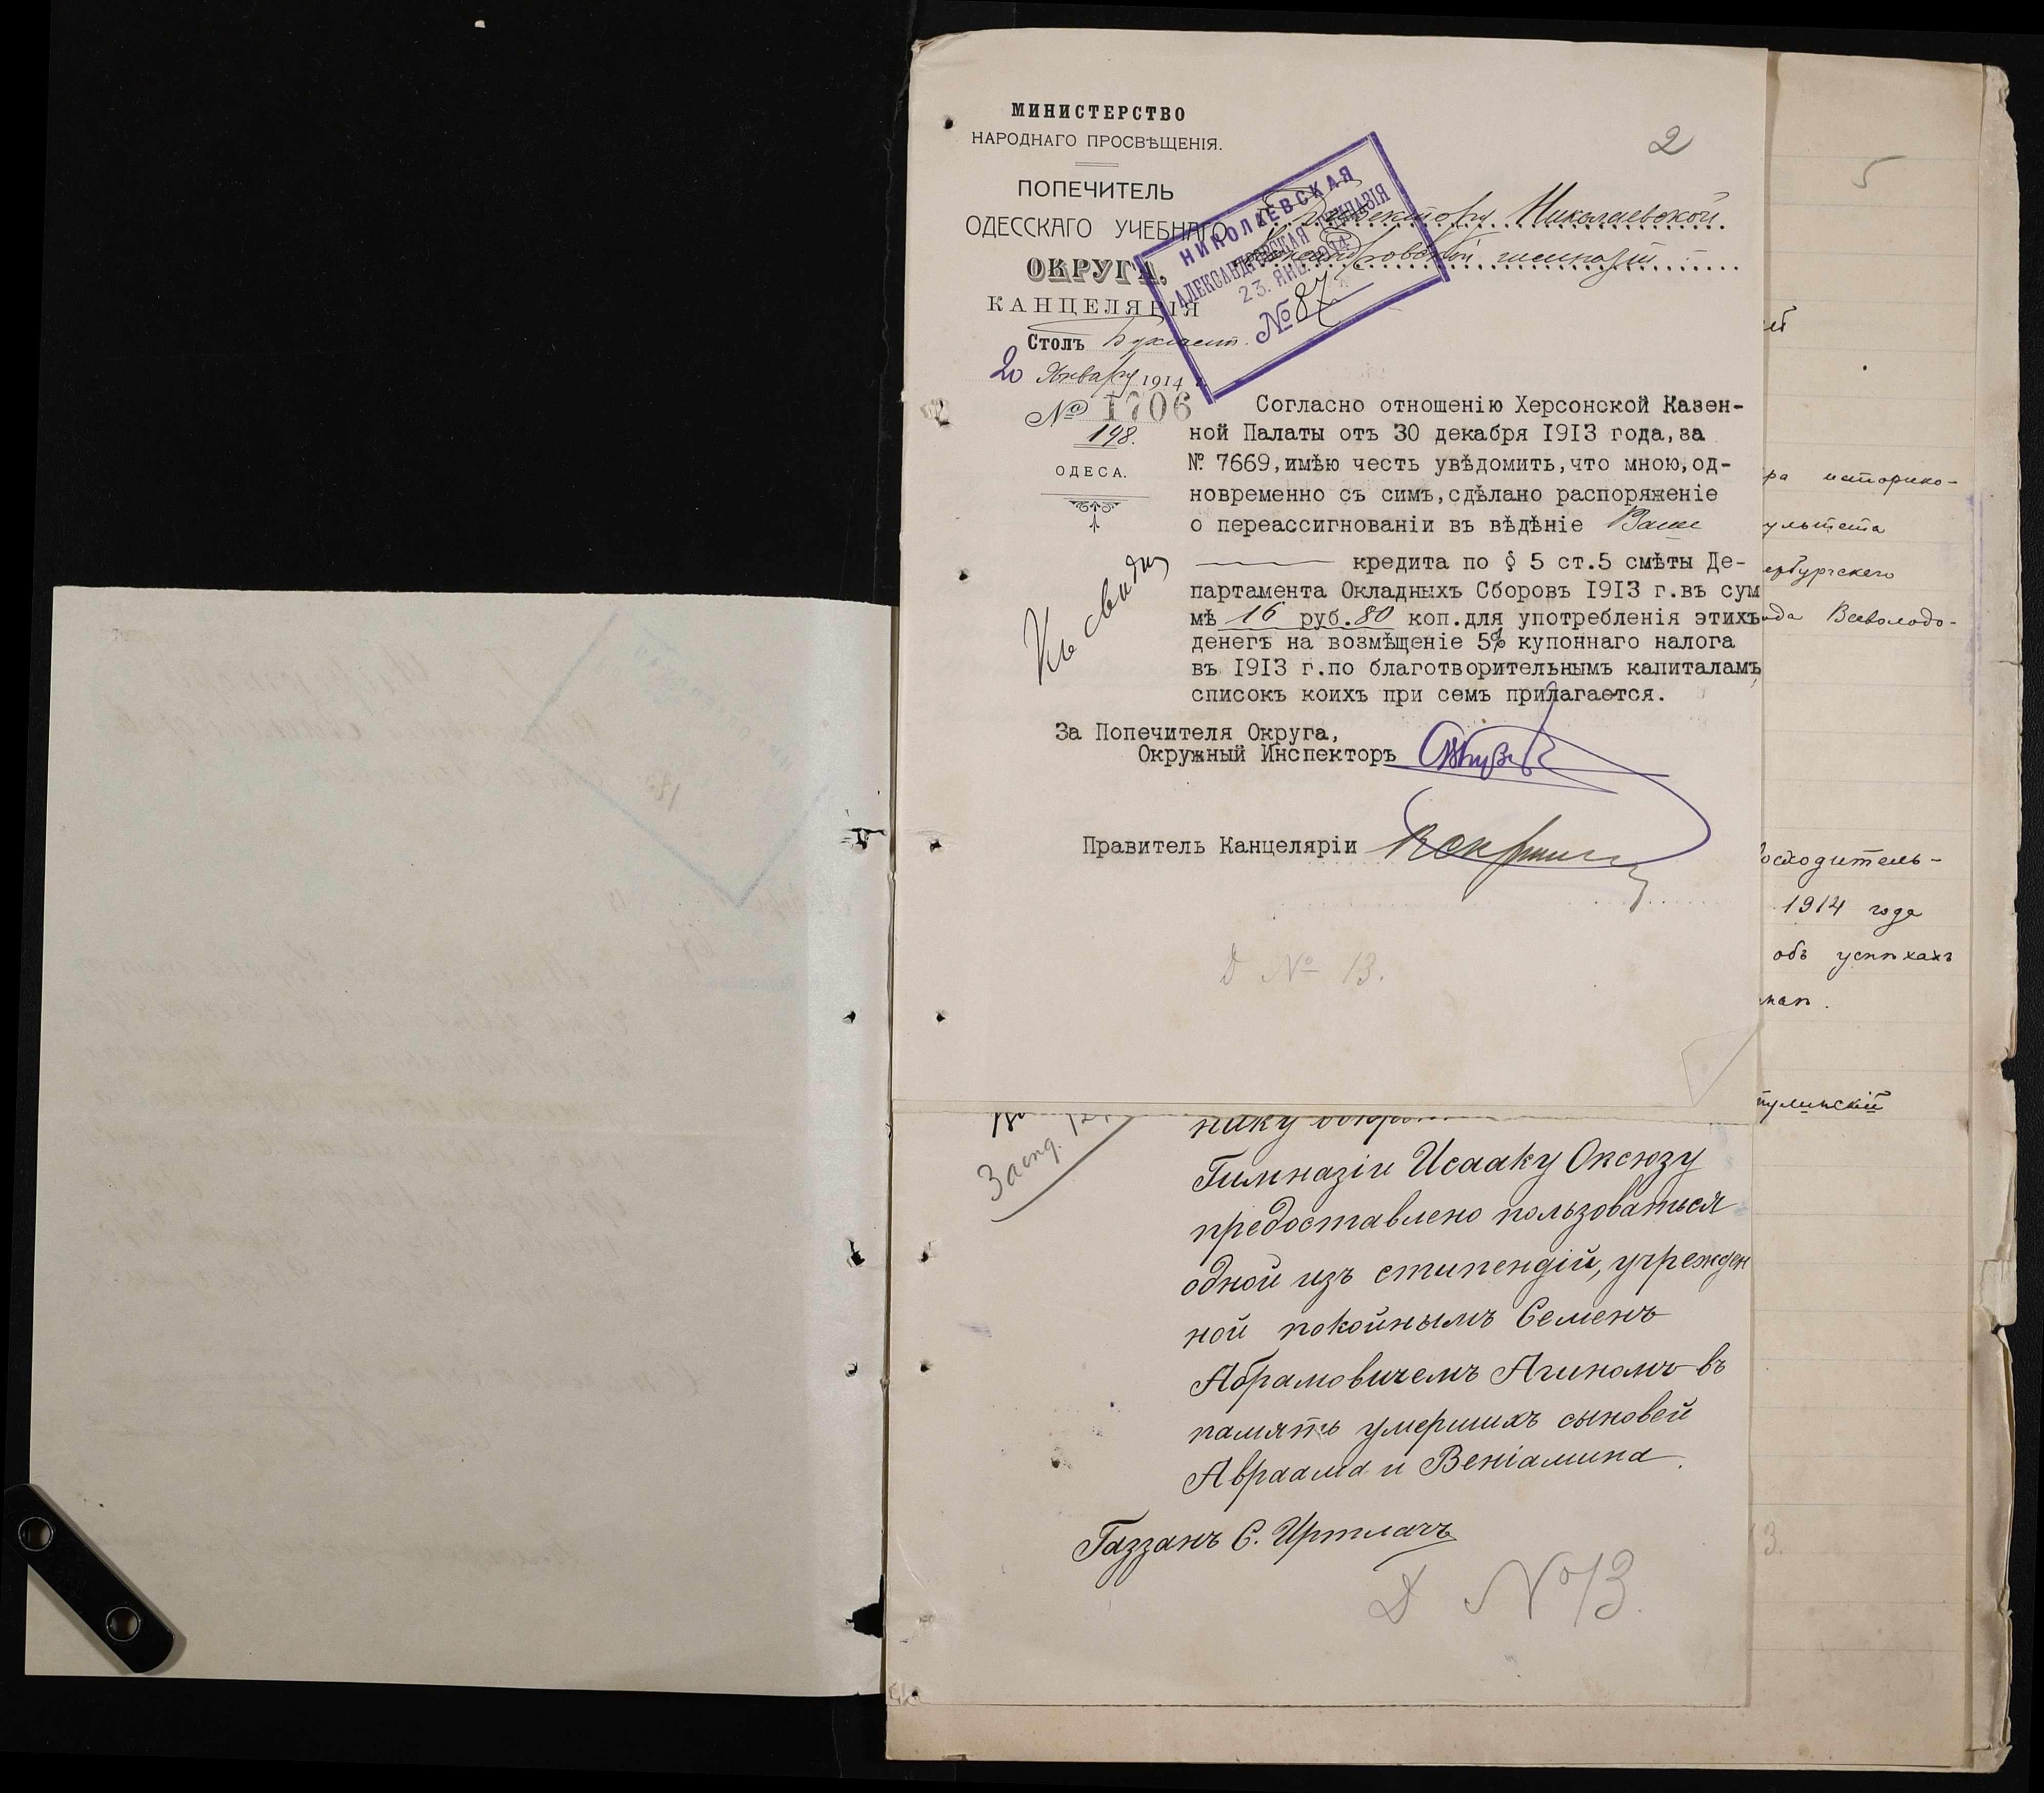 МИНИСТЕРСТВО
НАРОДНАГО ПРОСВѢЩЕНІЯ.
ПОПЕЧИТЕЛЬ
ОДЕССКАГО УЧЕБНАГО
ОКРУГА,
КАНЦЕЛЯРІЯ
Столъ
20 Января 1914 г.
№ 1706
198.
ОДЕСА.
2
Директору Николаевской
Александровской гимназіи
НИКОЛАЕВСКАЯ
АЛЕКСАНДРОВСКАЯ ГИМНАЗІЯ
23. ЯНВ. 1914
№ 87
Согласно отношенію Херсонской Казен-
ной Палаты отъ 30 декабря 1913 года, за
№ 7669, имѣю честь увѣдомить, что мною, од-
новременно съ симъ, сдѣлано распоряженіе
о переассигнованіи въ вѣдѣніе Ваше
кредита по § 5 ст.5 смѣты Де-
партамента Окладныхъ Сборовъ 1913 г. въ сум
мѣ 16 руб. 80 коп. для употребленія этихъ
денегъ на возмѣщеніе 5% купоннаго налога
въ 1913 г. по благотворительнымъ капиталамъ,
списокъ коихъ при семъ прилагается.
Къ свѣдѣн
За Попечителя Округа,
Окружный Инспекторъ
Правитель Канцеляріи
Д № 13.
нику
Гимназіи Исааку Оксюзу
предоставлено пользоваться
одной изъ стипендій, учрежден
ной покойнымъ Семенъ
Абрамовичемъ Агиномъ въ
память умершихъ сыновей
Авраама и Веніамина.
Газзанъ С. Иртлачъ
Д №13.
5
ра историко-
ультета
ербургскаго
ода Всеволодо-
осходитель-
1914 года
объ успѣхахъ
тулинскій
3.